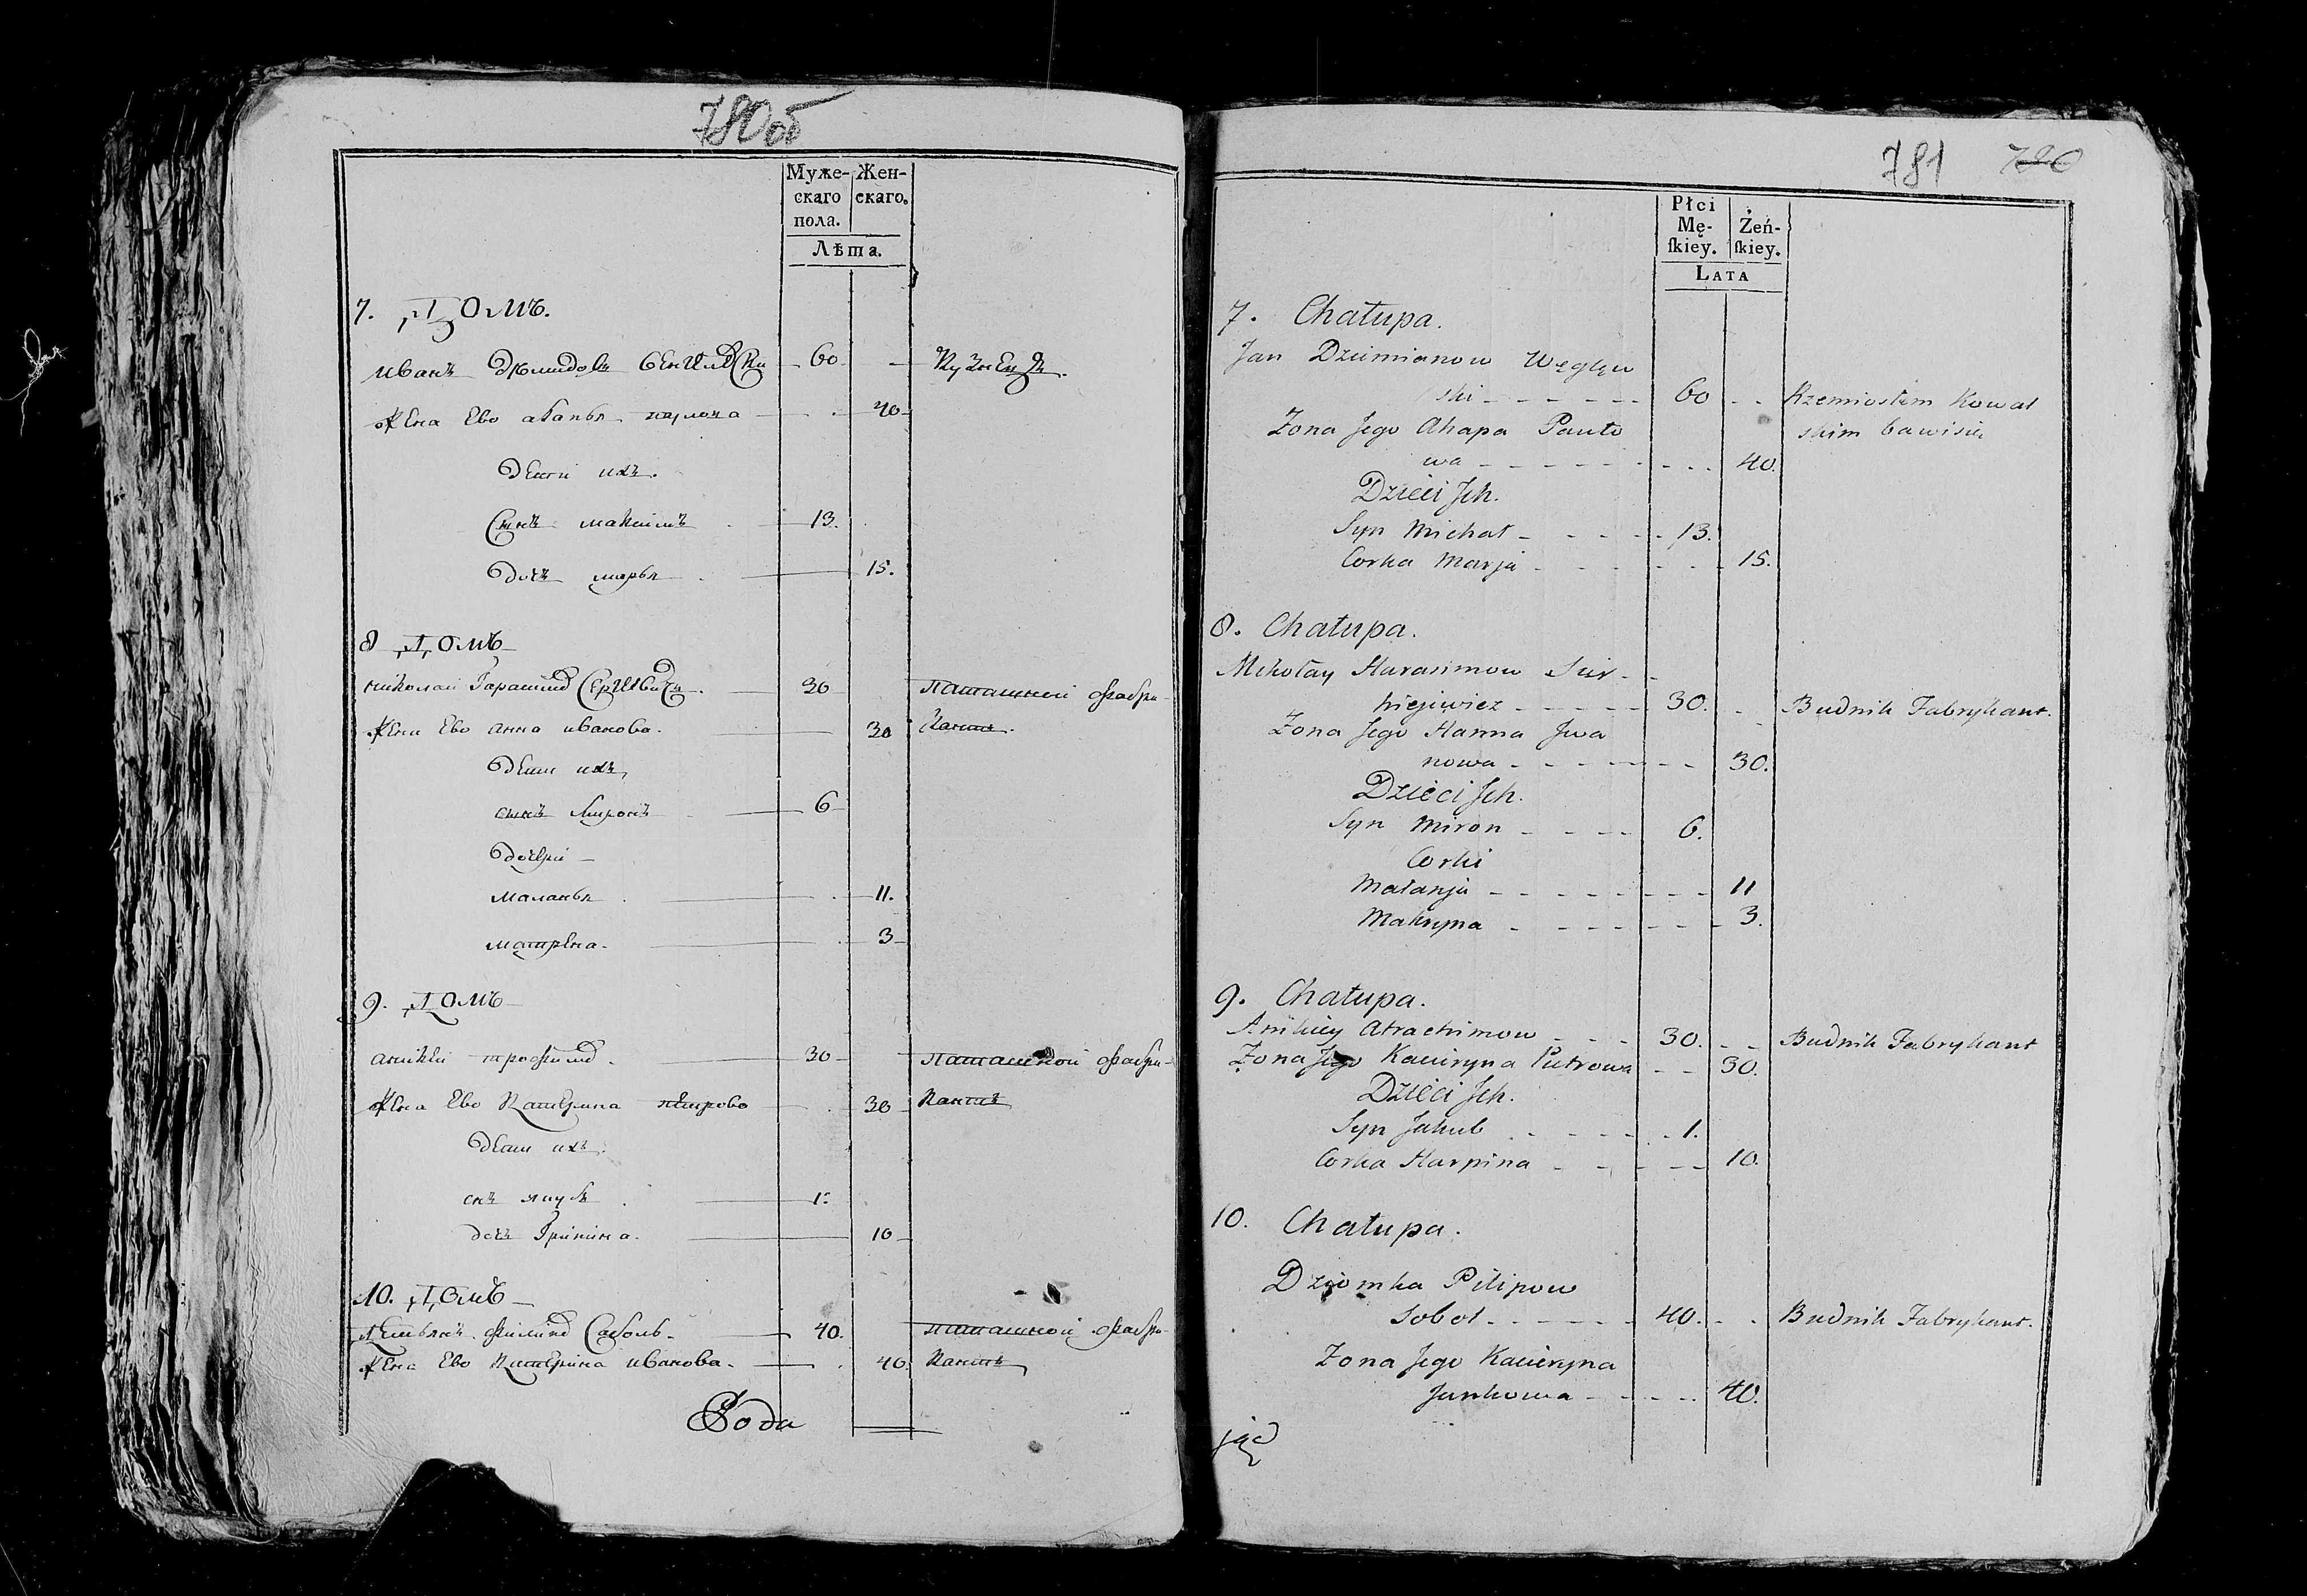 780об
Муже-
скаго
пола.
Жен-
скаго.
Лѣта.
7. Домъ.
иванъ демидовъ венглвски 60 Кузнецъ.
жена Ево агапья павлова 40
дети ихъ.
Снъ максимъ 13.
дочъ марья 15.
8 Домъ
николаи Гарасимо Сергиевичъ. 30 паташнои фабри-
жена Ево анна иванова. 30 кантъ.
дети ихъ
сынъ Миронъ 6
дочери
маланья 11.
матрена. 3
9. Домъ
аникеи трофимо. 30 паташнои фабри-
жена Ево Катерина петрова 30 кантъ
дети ихъ.
снъ якубъ 1.
дочъ Грипина. 10
10. Домъ
демьянъ филипо Саболь. 40. паташнои фабри-
жена Ево Катерина иванова. 40 кантъ
781 780
Płci
Mę-
ſkiey.
Żeń-
ſkiey.
LATA
7. Chałupa.
Jan Dziemianow Węglew
ski 60 Rzemiosłem Kowal
Zona Jego Ahapa Pauło skim bawisię
wa 40.
Dzieci Jch.
Syn Michał 13.
Corka Marja 15.
8. Chałupa.
Mikołay Harasimow Sier-
hiejewicz 30. Budnik Fabrykant.
Zona Jego Hanna Jwa
nowa 30.
Dzieci Jch.
Syn Miron 6.
Corki
Małanja 11
Makryna 3.
9. Chałupa.
Anikiey Atrachimow 30. Budnik Fabrykant
Zona Jego Kacieryna Pietrowa 30.
Dzieci Jch.
Syn Jakub 1.
Corka Harpina 10.
10. Chałupa.
Dziomka Pilipow
Sobol 40. Budnik Fabrykant.
Zona Jego Kacieryna
Jankowa 40.